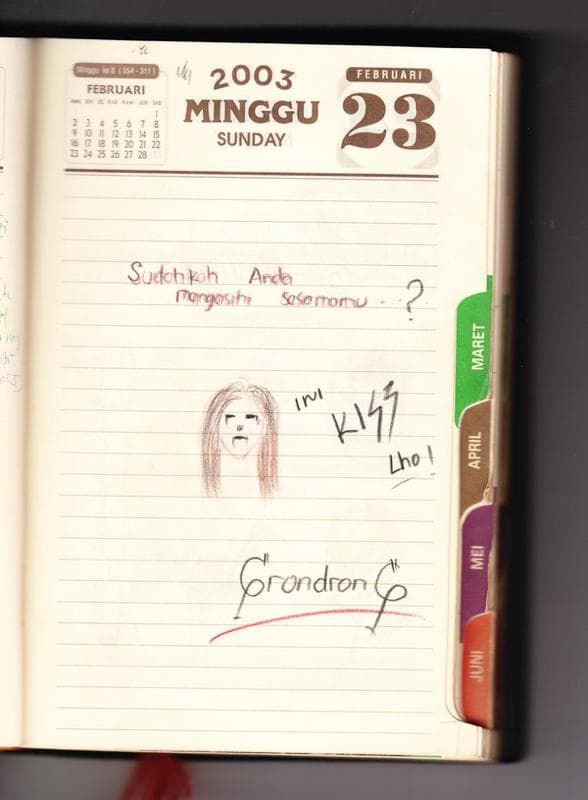 2003
MINGGU
SUNDAY
FEBRUARI
23
Minggu ke.8 ( 054 - 311 )
FEBRUARI
MING SEN SEL RAB KAM JUM SAB
1
2 3 4 5 6 7 8
9 10 11 12 13 14 15
16 17 18 19 20 21 22
23 24 25 26 27 28
Sudahkah Anda
mengasihi sesamamu ... ?
INI KISS
Lho!
GrondronG
MARET
APRIL
MEI
JUNI